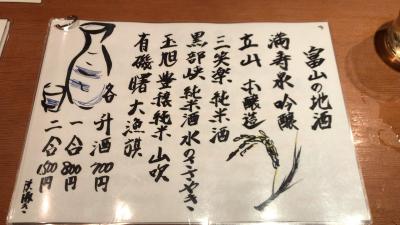 富山の地酒
満寿泉 吟醸
立山 本醸造
三笑楽 純米酒
黒部峡 純米酒 水のささやき
玉旭 豊穣純米 山吹
有磯曙 大漁旗
各 升酒 700円
一合 800円
二合 1500円